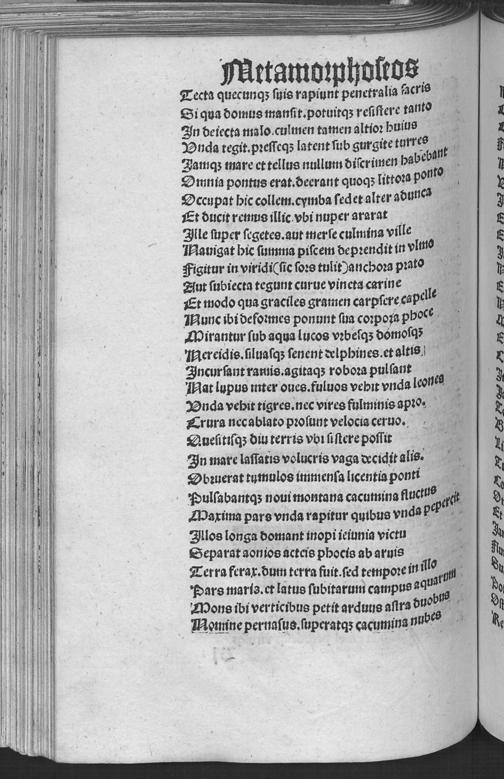 Metamorphoseos
Tecta quecunqꝫ suis rapiunt penetralia sacris
Si qua domus mansit.potuitqꝫ resistere tanto
In deiecta malo.culmen tamen altior huius
Vnda tegit.presseqꝫ latent sub gurgite turres
Iamqꝫ mare et tellus nullum discrimen habebant
Omnia pontus erat.deerant quoqꝫ littora ponto
Occupat hic collem.cymba sedet alter adunca
Et ducit remus illic vbi nuper ararat
Ille super segetes.aut merse culmina ville
Nauigat hic summa piscem deprendit in vlmo
Figitur in viridi(sic sors tulit)anchora prato
Aut subiecta tegunt curue vincta carine
Et modo qua graciles gramen carpsere capelle
Nunc ibi deformes ponunt sua corpora phoce
Mirantur sub aqua lucos vrbesqꝫ domosqꝫ
Nereidis.siluasqꝫ tenent delphines.et altis
Incursant ramis.agitaqꝫ robora pulsant
Nat lupus inter oues.fuluos vehit vnda leones
Vnda vehit tigres.nec vires fulminis apro.
Crura nec ablato prosunt velocia ceruo.
Quesitisqꝫ diu terris vbi sistere possit
In mare lassatis volucris vaga decidit alis.
Obruerat tumulos immensa licentia ponti
Pulsabantqꝫ noui montana cacumina fluctus
Maxima pars vnda rapitur quibus vnda pepercit
Illos longa domant inopi ieiunia victu
Separat aonios acteis phocis ab aruis
Terra ferax.dum terra fuit.sed tempore in illo
Pars maris.et latus subitarum campus aquarum
Mons ibi verticibus petit arduus astra duobus
Nomine pernasus.superatqꝫ cacumina nubes